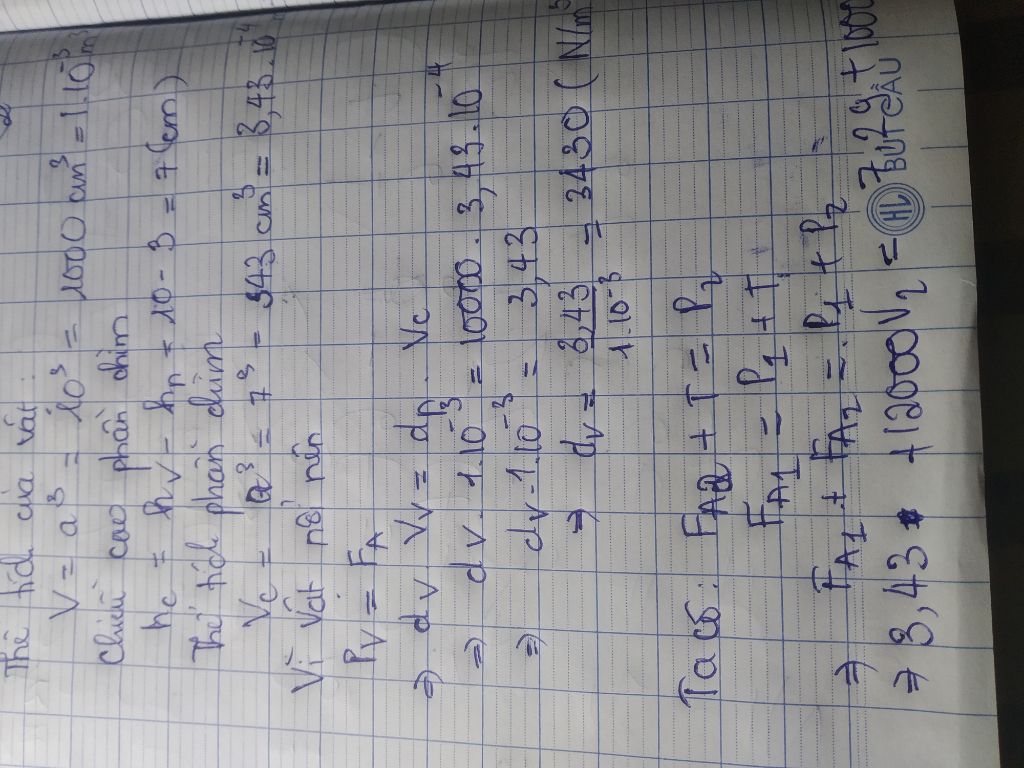 Thể tích của vật:
V = a³ = 10³ = 1000 cm³ = 1.10⁻³ m³
Chiều cao phần chìm
hc = hv - hn = 10 - 3 = 7 (cm)
Thể tích phần chìm
Vc = a³ = 7³ = 343 cm³ = 3,43.10⁻⁴
Vì vật nổi nên
Pv = FA
⇒ dv . Vv = dn . Vc
⇒ dv . 1.10⁻³ = 10000 . 3,43.10⁻⁴
⇒ dv . 1.10⁻³ = 3,43
⇒ dv = 3,43 / 1.10⁻³ = 3430 (N/m³
Ta có: FA2 + T = P2
FA1 = P1 + T
⇒ FA1 + FA2 = P1 + P2
⇒ 3,43 + 12000V2 = 7,29 + 1000
HL BÚT CẦU